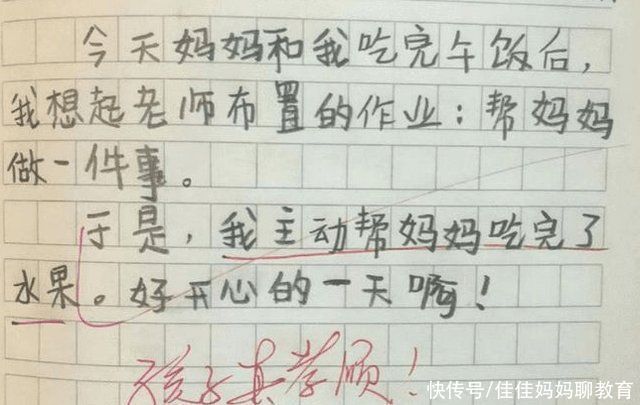 今天妈妈和我吃完午饭后,
我想起老师布置的作业:帮妈妈
做一件事。
于是,我主动帮妈妈吃完了
水果。好开心的一天啊!
孩子真孝顺!
快传号/佳佳妈妈聊教育